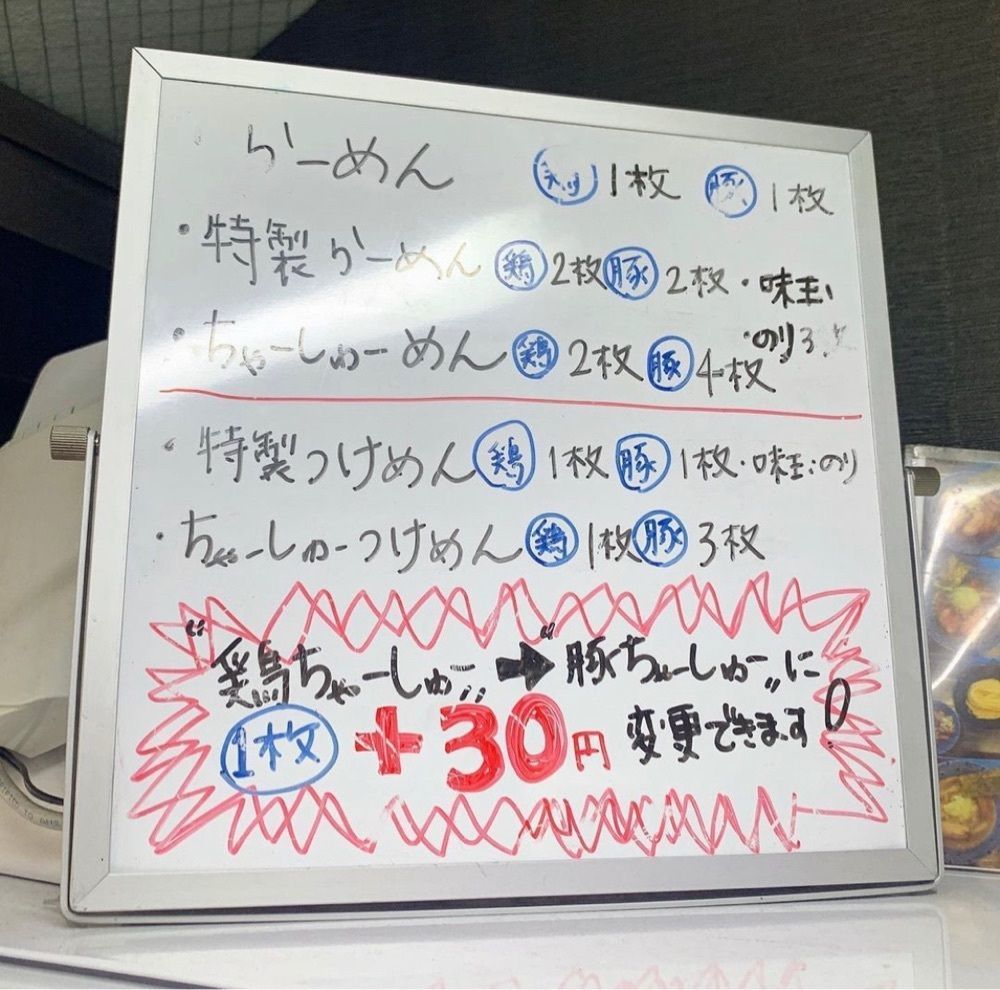 らーめん 鶏 1枚 豚 1枚
・特製らーめん 鶏 2枚 豚 2枚・味玉・のり3
・ちゃーしゅーめん 鶏 2枚 豚 4枚
・特製つけめん 鶏 1枚 豚 1枚・味玉・のり
・ちゃーしゅーつけめん 鶏 1枚 豚 3枚
"鶏ちゃーしゅー"➡"豚ちゃーしゅー"に
1枚 +30円 変更できます!